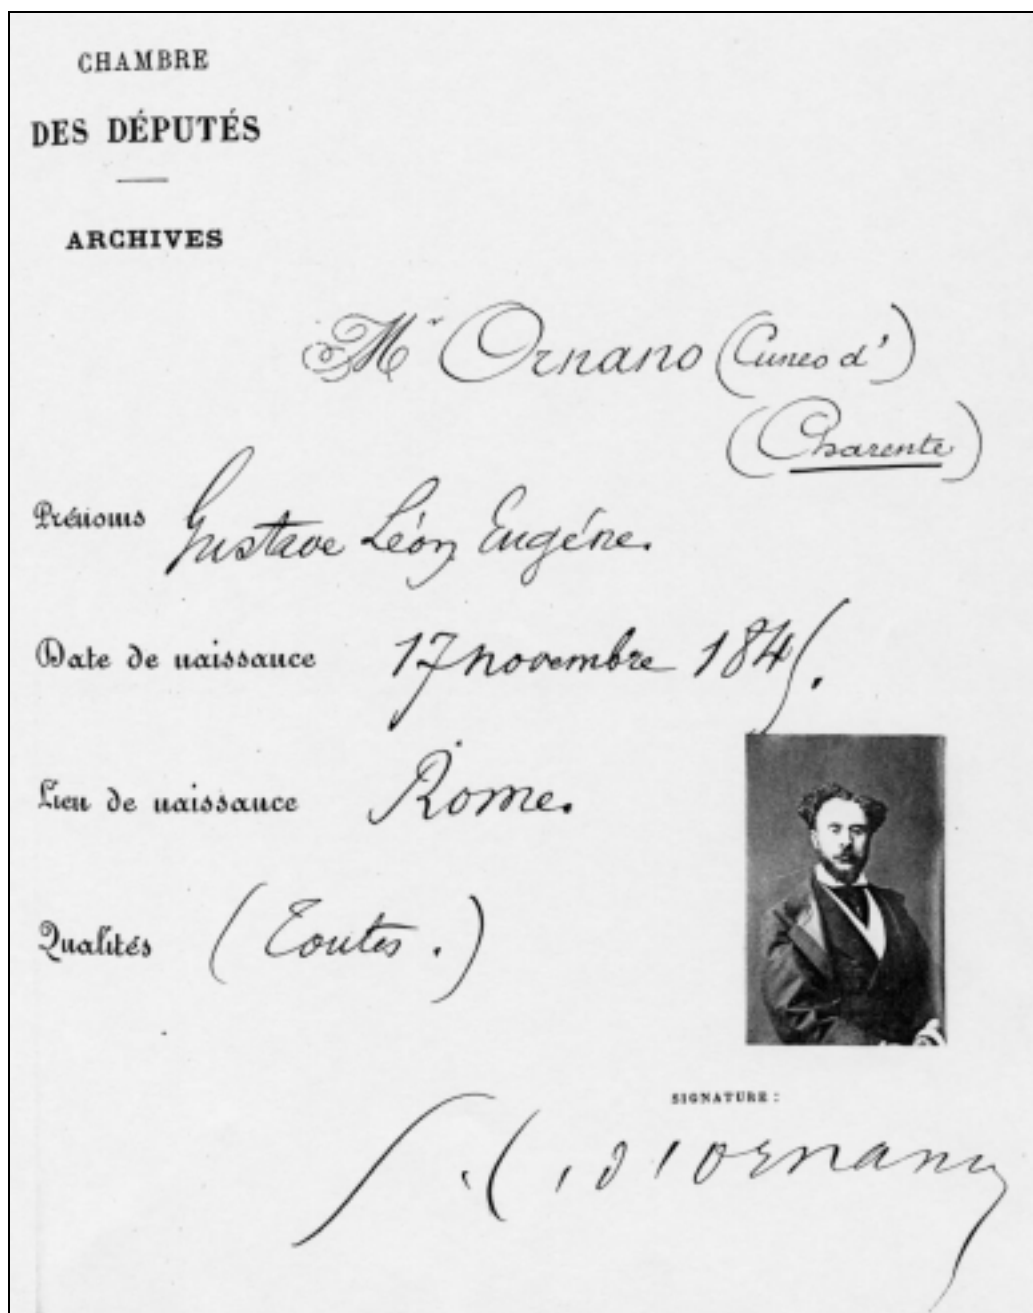 CHAMBRE
DES DÉPUTÉS
ARCHIVES
Mr Ornano (Cuneo d')
(Charente)
Prénoms Gustave Léon Eugéne.
Date de naissance 17 novembre 1845.
Lieu de naissance Rome.
Qualités (Toutes.)
SIGNATURE :
d'Ornano